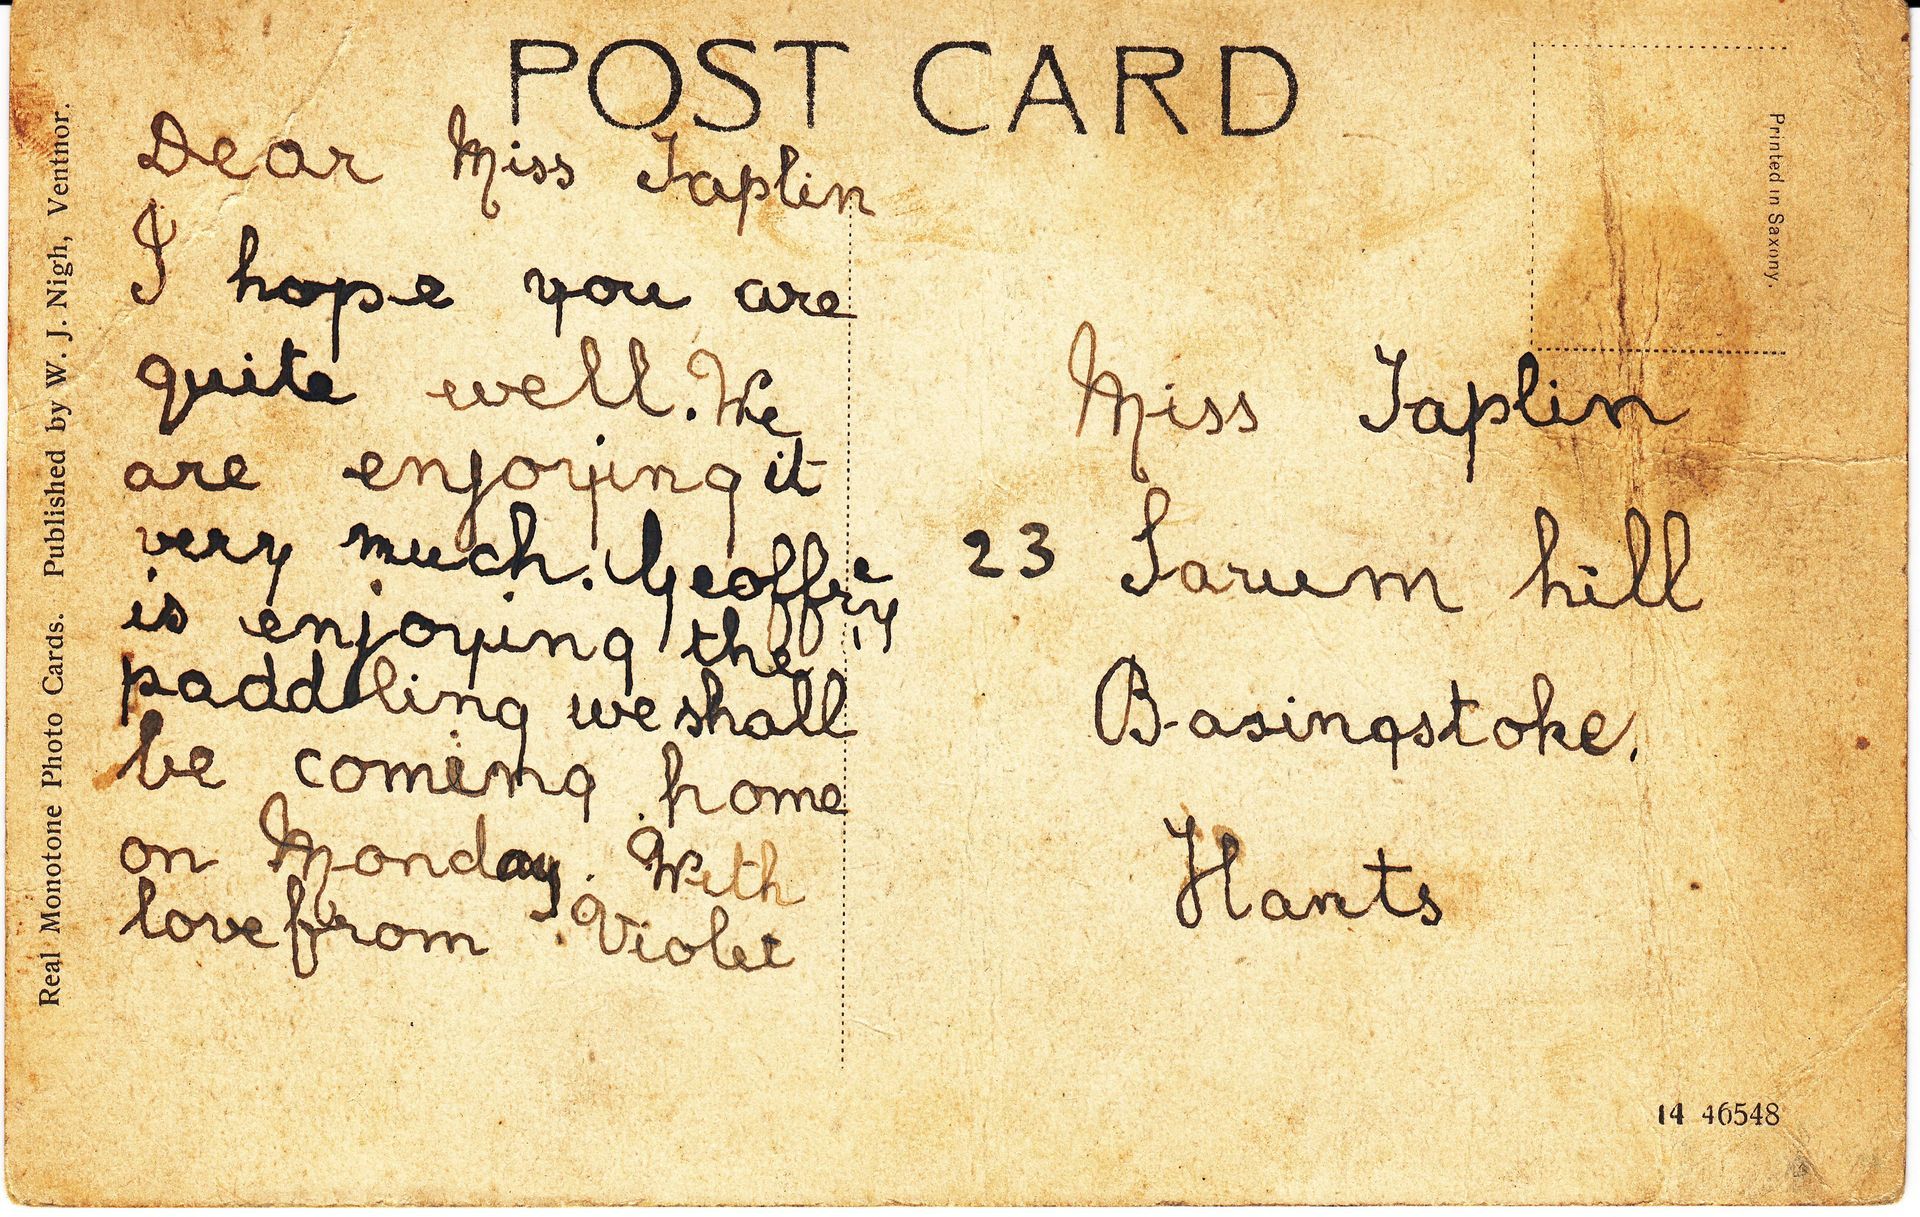 POST CARD
Real Monotone Photo Cards. Published by W. J. Nigh, Ventnor.
Dear Miss Taplin
I hope you are
quite well. We
are enjoying it
very much. Geoffrey
is enjoying the
paddling we shall
be coming home
on Monday. With
love from Violet
Printed in Saxony.
Miss Taplin
23 Sarum hill
Basingstoke.
Hants
14 46548